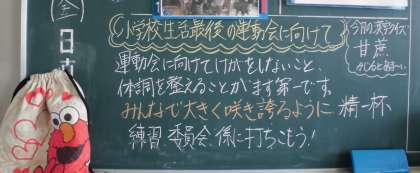 (金)
日
直
小学校生活最後の運動会に向けて
運動会に向けてけがをしないこと、
体調を整えることがまず第一です。
みんなで大きく咲き誇るように 精一杯
練習・委員会・係に打ちこもう!
今日の漢字クイズ
甘蔗